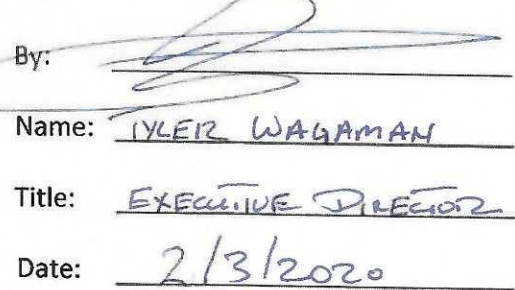 By:
Name: TYLER WAGAMAN
Title: EXECUTIVE DIRECTOR
Date: 2/3/2020